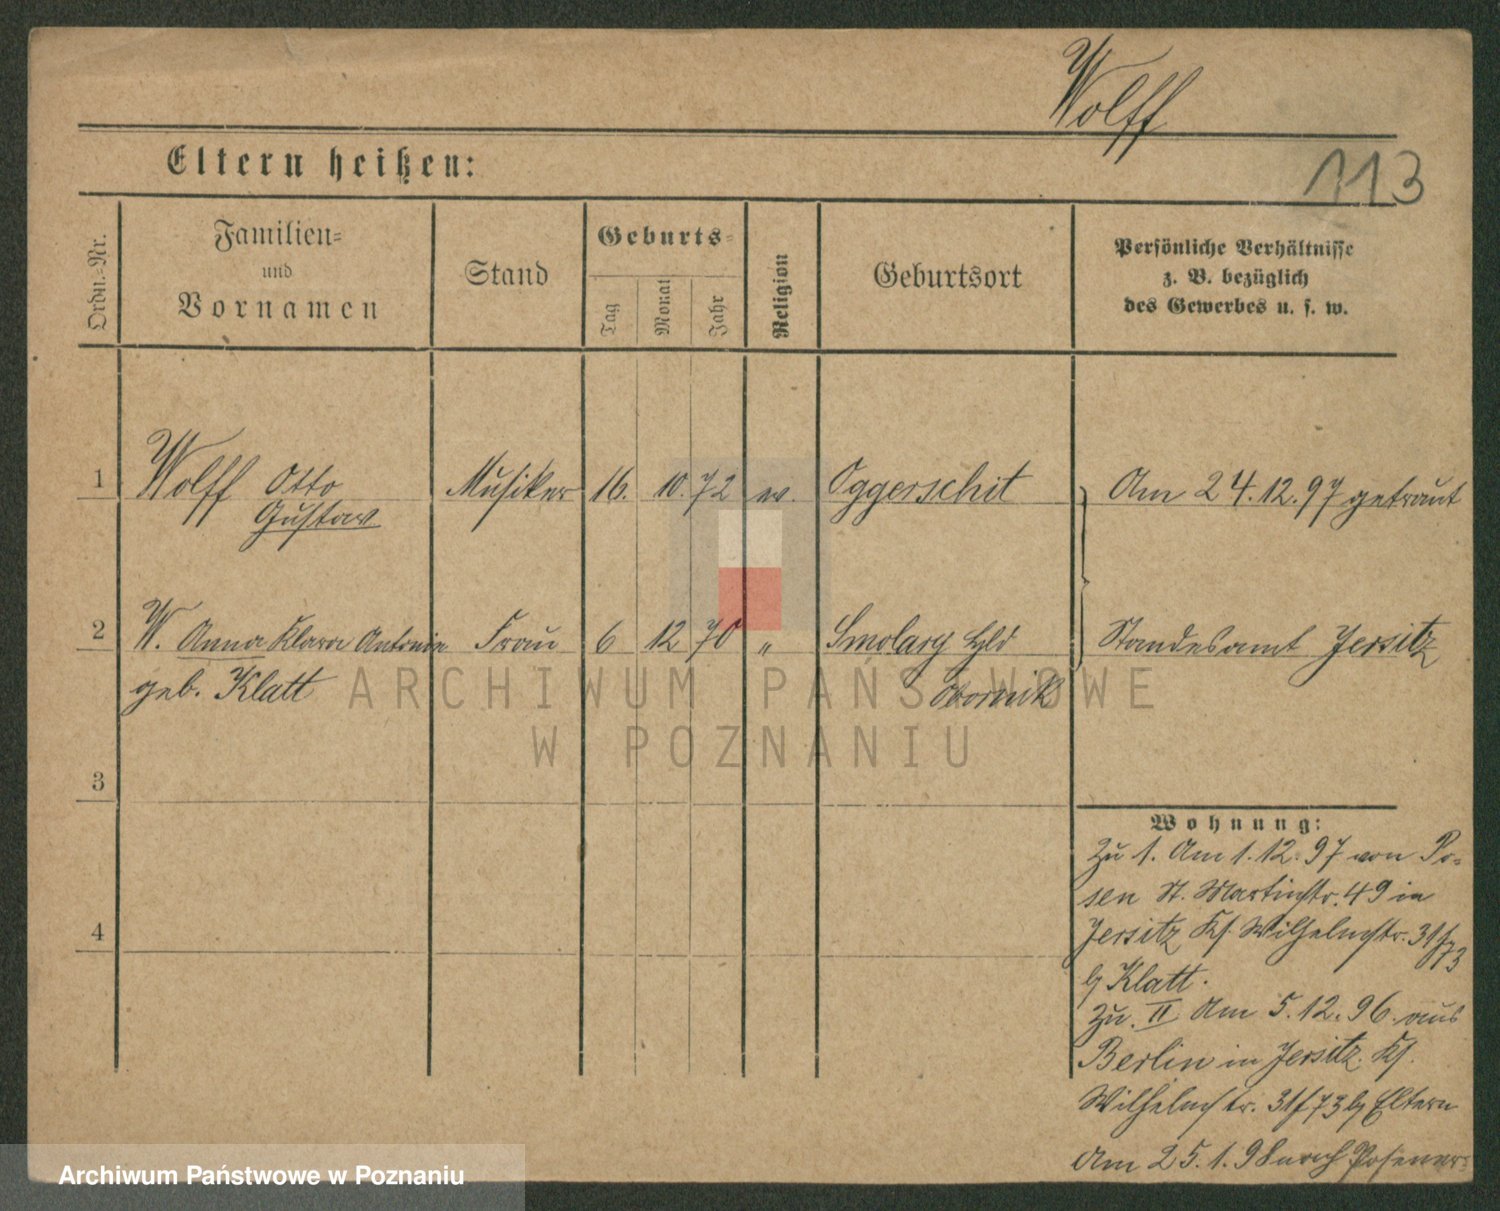 Wolff
113
Eltern heißen:
Ordn.=Nr.
Familien=
und
Vornamen
Stand
Geburts=
Tag
Monat
Jahr
Religion
Geburtsort
Persönliche Verhältnisse
z. B. bezüglich
des Gewerbes u. s. w.
1 Wolff Otto Musiker 16. 10. 72 ev. Oggerschit Am 24.12.97 getraut
Gustav
2 W. Anna Klara Antonie Frau 6 12 70 " Smolary Hld Standesamt Jersitz
geb. Klatt Obornik
ARCHIWUM PAŃSTWOWE
W POZNANIU
3
4
Wohnung:
Zu 1. Am 1.12.97 von Po-
sen St. Martinstr. 49 in
Jersitz Ks. Wilhelmstr. 31/73
b/ Klatt.
Zu. II Am 5.12.96. aus
Berlin in Jersitz. Ks.
Wilhelmstr. 31/73 b/ Eltern
Am 25.1.98 nach Posener-
Archiwum Państwowe w Poznaniu